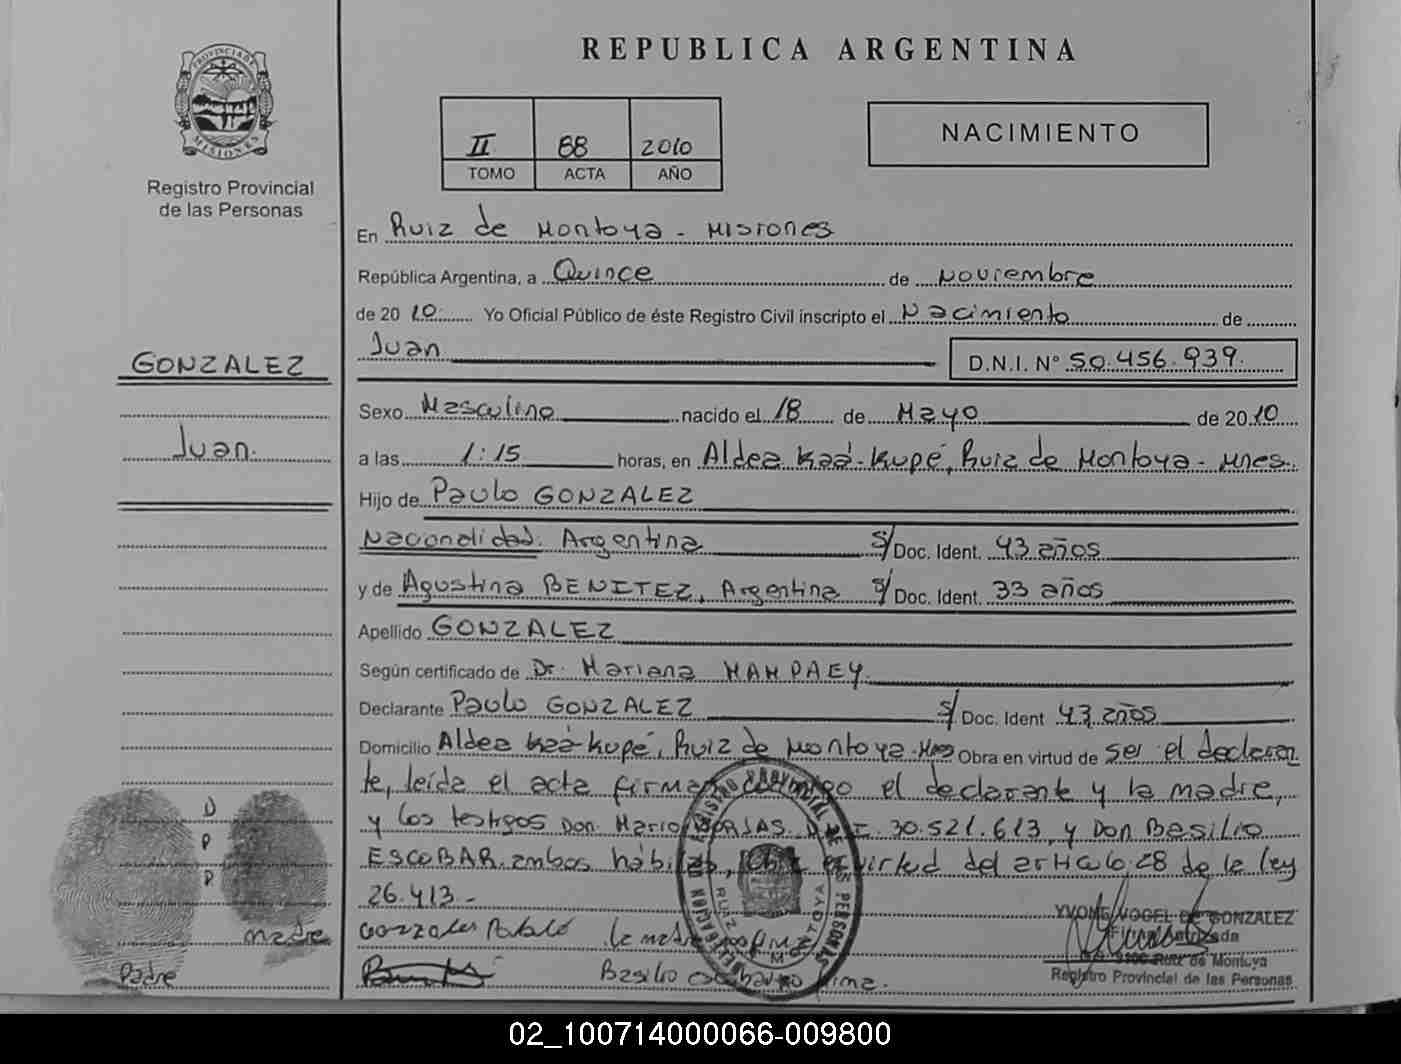 REPUBLICA ARGENTINA
PROVINCIA DE
MISIONES
Registro Provincial
de las Personas
II 88 2010
TOMO ACTA AÑO
NACIMIENTO
En Ruiz de Montoya - Misiones
República Argentina, a Quince de Noviembre
de 2010 Yo Oficial Público de éste Registro Civil inscripto el Nacimiento de
Juan D.N.I. N° 50.456.939.
GONZALEZ
Juan.
Sexo Masculino nacido el 18 de Mayo de 2010
a las 1:15 horas, en Aldea Kaá-Kupé, Ruiz de Montoya - Mnes.
Hijo de Paulo GONZALEZ
Nacondlidad. Argentina S/ Doc. Ident. 43 años
y de Agustina BENITEZ, Argentina S/ Doc. Ident. 33 años
Apellido GONZALEZ
Según certificado de Dr. Mariana MAMPAEY.
Declarante Paulo GONZALEZ S/ Doc. Ident 43 años
Domicilio Aldea Kaá-Kupé, Ruiz de Montoya-Mnes Obra en virtud de ser el declaran
te, leída el acta firman conmigo el declarante y la madre,
y los testigos Don. Mario BORJAS D.N.I. 30.521.613, y Don Basilio
ESCOBAR. ambos hábiles, en virtud del artículo 28 de la ley
26.413 -
D
P
D
madre
Padre
Gonzales Pablo la madre no firma
Basilio Escobar no firma.
YVONE VOGEL DE GONZALEZ
Ruiz de Montoya
Registro Provincial de las Personas
REGISTRO PROVINCIAL DE LAS PERSONAS
RUIZ DE MONTOYA
02_100714000066-009800